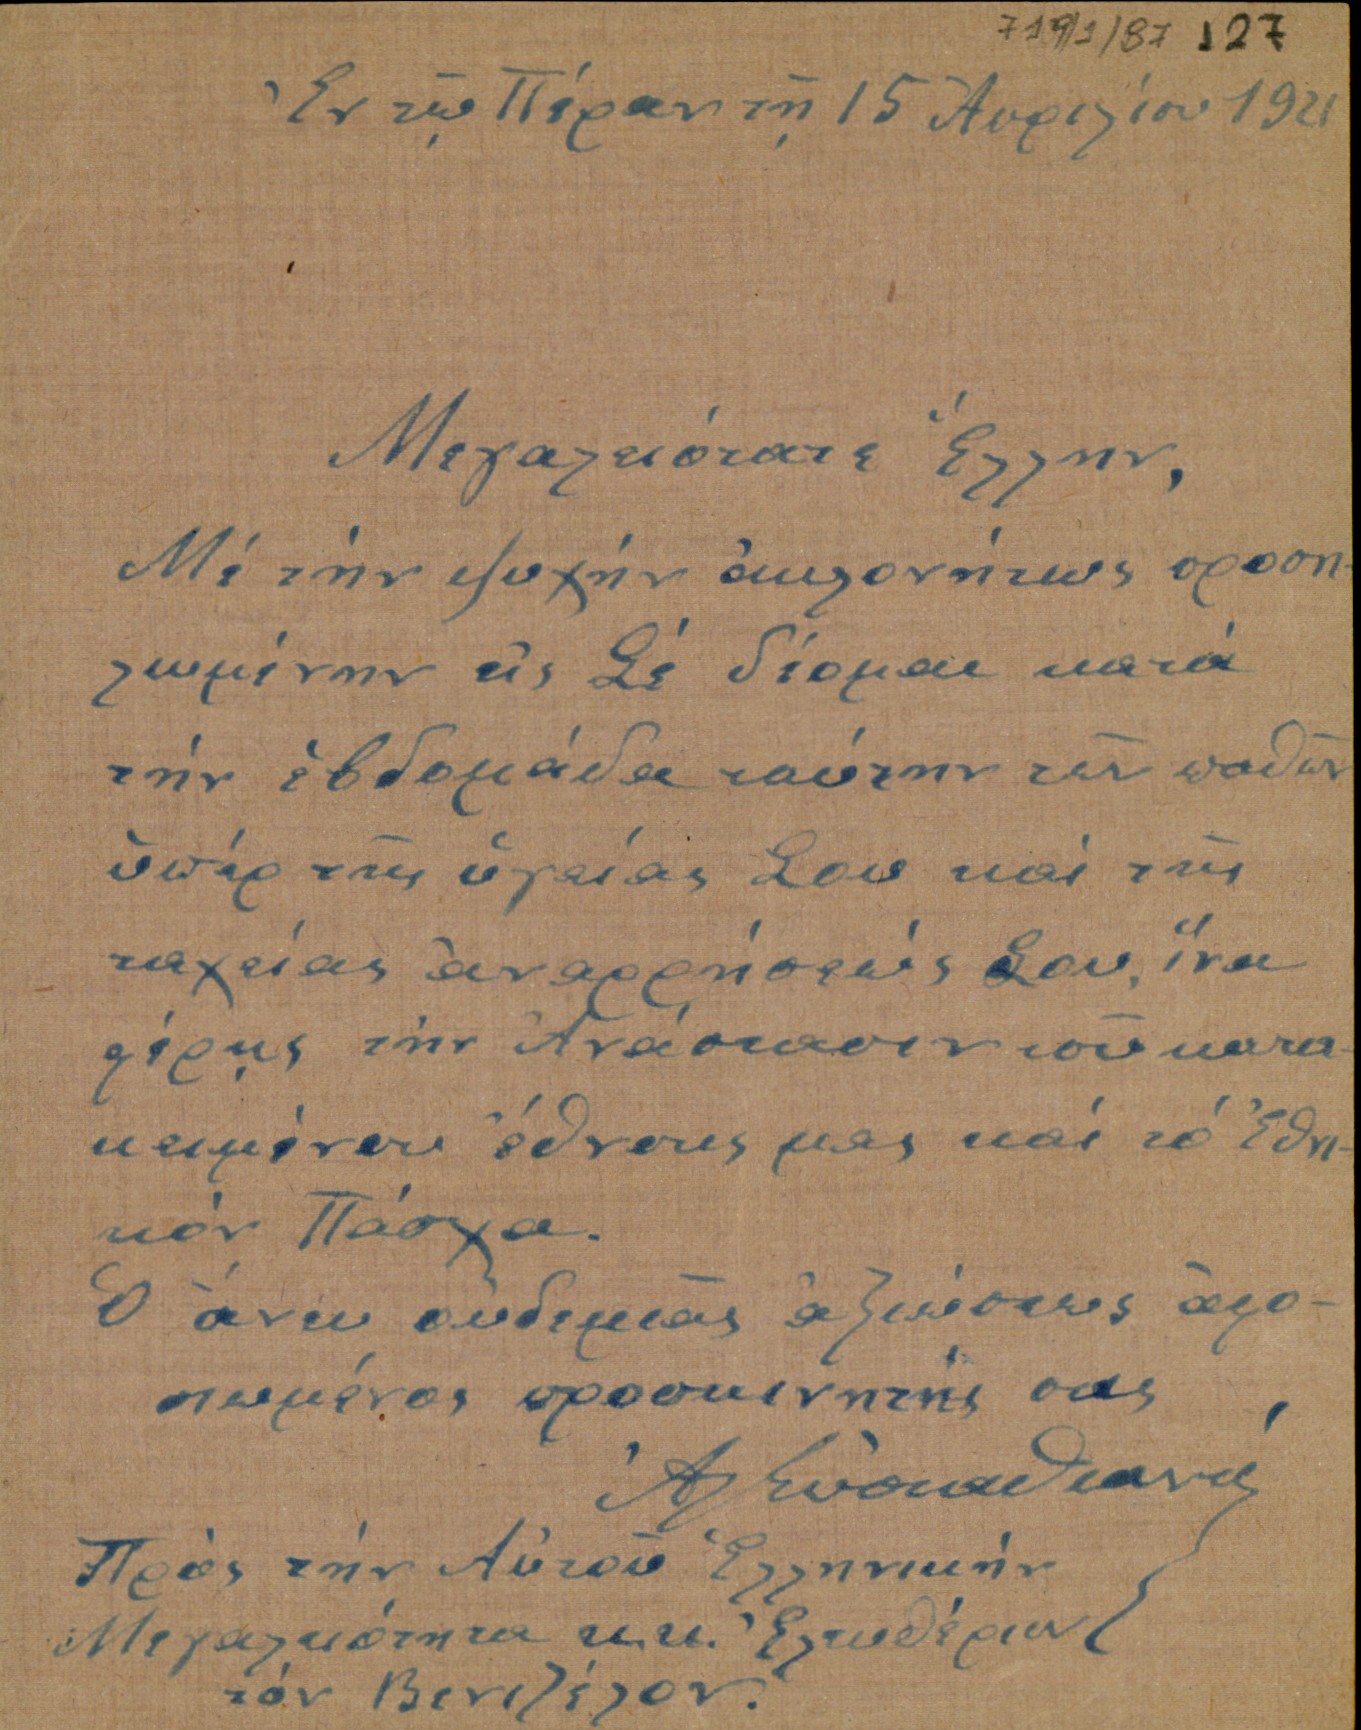 719/1/87 127
Ἐν τῷ Πέραν τῇ 15 Ἀπριλίου 1921
Μεγαλειότατε Ἕλλην,
Μέ τήν ψυχήν ἀκλονήτως προση-
λωμένην εἰς Σέ δέομαι κατά
τήν ἑβδομάδα ταύτην τῶν παθῶν
ὑπέρ τῆς ὑγείας Σου καί τῆς
ταχείας ἀναρρήσεώς Σου, ἵνα
φέρῃς τήν Ἀνάστασιν τοῦ κατα-
κειμένου ἔθνους μας καί τό Ἐθνι-
κόν Πάσχα.
Ὁ ἄνευ οὐδεμιᾶς ἀξιώσεως ἀφο-
σιωμένος προσκυνητής σας,
Πρός τήν Αὐτοῦ Ἑλληνικήν
Μεγαλειότητα κ.κ. Ἐλευθέριον
τόν Βενιζέλον.